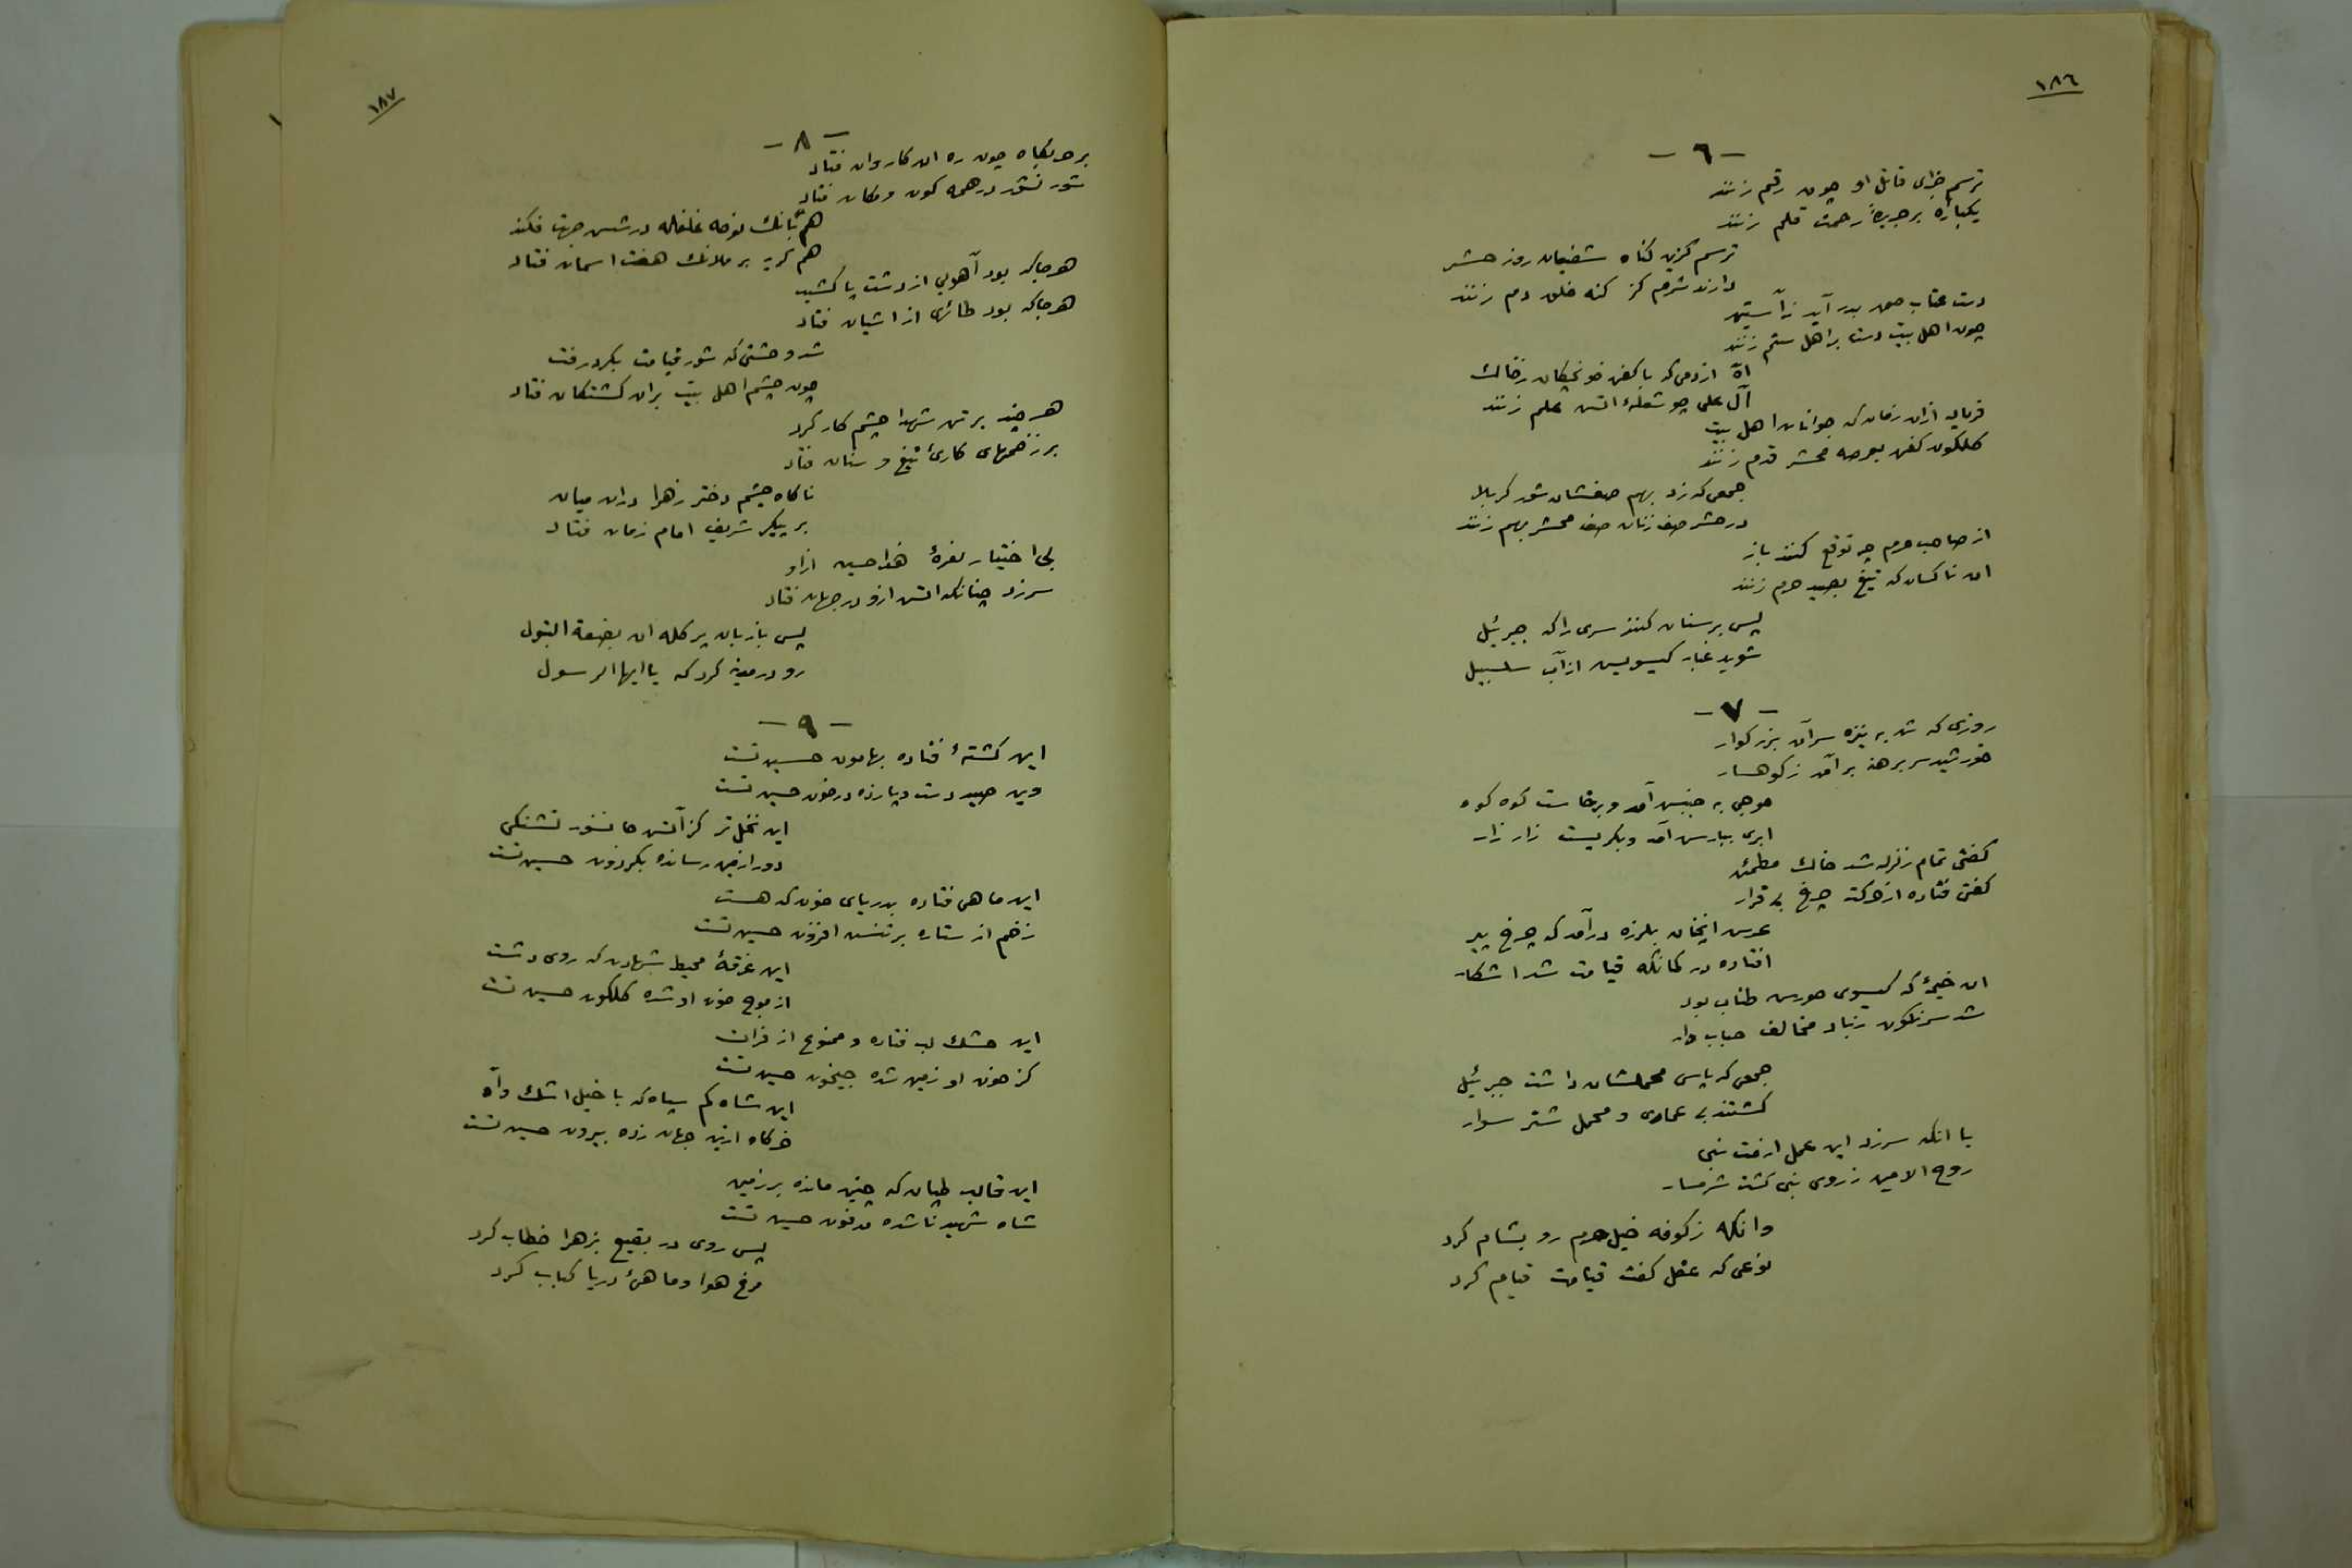 ١٨٦
- ٦ -
ترسم جزای قاتل او چون رقم زنند
یکباره بر جریدهٔ رحمت قلم زنند
ترسم کزین گناه شفیعان روز حشر
دارند شرم کز گنه خلق دم زنند
دست عتاب حق بدر آید ز آستین
چون اهل بیت دست بر اهل ستم زنند
آه از دمی که با کفن خونچکان ز خاک
آل علی چو شعلهٔ اتش علم زنند
فریاد ازان زمان که جوانان اهل بیت
گلگون کفن بعرصه محشر قدم زنند
جمعی که زد بهم صفشان شور کربلا
در حشر صف زنان صف محشر بهم زنند
از صاحب حرم چه توقع کنند باز
ان ناکسان که تیغ بصید حرم زنند
پس بر سنان کنند سری را که جبرئیل
شوید غبار گیسویس از آب سلسبیل
- ٧ -
روزی که شد به نیزه سر آن بزرگوار
خورشید سر برهنه بر آمد ز کوهسار
موجی به جنبش آمد و برخاست کوه کوه
ابری ببارس آمد و بگریست زار زار
گفتی تمام زلزله شد خاك مطمئن
گفتی فتاده از حرکت چرخ بی قرار
عرس انچنان بلرزه در آمد که چرخ پیر
افتاده در گمانکه قیامت شد اشکار
ان خیمهٔ که گیسوی حورس طناب بود
شد سرنگون ز باد مخالف حباب وار
جمعی که پاس محملشان داشت جبرئیل
گشتند بی عماری و محمل شتر سوار
با انکه سرزد این عمل از امت نبی
روح الامین ز روی نبی گشت شرمسار
وانگه ز کوفه خیل حرم رو بشام کرد
نوعی که عقل گفت قیامت قیام کرد
١٨٧
- ٨ -
بر حربگاه چون ره ان کاروان فتاد
شور نشور در همه کون و مکان فتاد
هم بانك نوحه غلغله در شس جهت فکند
هم گریه بر ملائك هفت اسمان فتاد
هر جا که بود آهویی از دشت پا کشید
هر جا که بود طائری از اشیان فتاد
شد وحشتی که شور قیامت بگرد رفت
چون چشم اهل بیت بران کشتگان فتاد
هر چند بر تن شهدا چشم کار کرد
بر زخمهای کاریٔ تیغ و سنان فتاد
ناگاه چشم دختر زهرا دران میان
بر پیکر شریف امام زمان فتاد
بی اختیار نعرهٔ هذا حسین ازاو
سرزد چنانکه اتش ازو در جهان فتاد
پس با زبان پر گله ان بضعة البتول
رو در مدینه کرد که یا ایها الرسول
- ٩ -
این کشتهٔ فتاده بهامون حسین تست
وین صید دست و پا زده در خون حسین تست
این نخل تر کز آتش جانسوز تشنگی
دود از زمین رسانده بگردون حسین تست
این ماهی فتاده بدریای خون که هست
زخم از ستاره بر تنس افزون حسین تست
این غرقهٔ محیط شهادت که روی دشت
از موج خون او شده گلگون حسین تست
این خشك لب فتاده و ممنوع از فرات
کز خون او زمین شده جیحون حسین تست
این شاه کم سپاه که با خیل اشك و آه
خرگاه ازین جهان زده بیرون حسین تست
این قالب طپان که چنین مانده بر زمین
شاه شهید ناشده مدفون حسین تست
پس روی در بقیع بزهرا خطاب کرد
مرغ هوا و ماهیٔ دریا کباب کرد